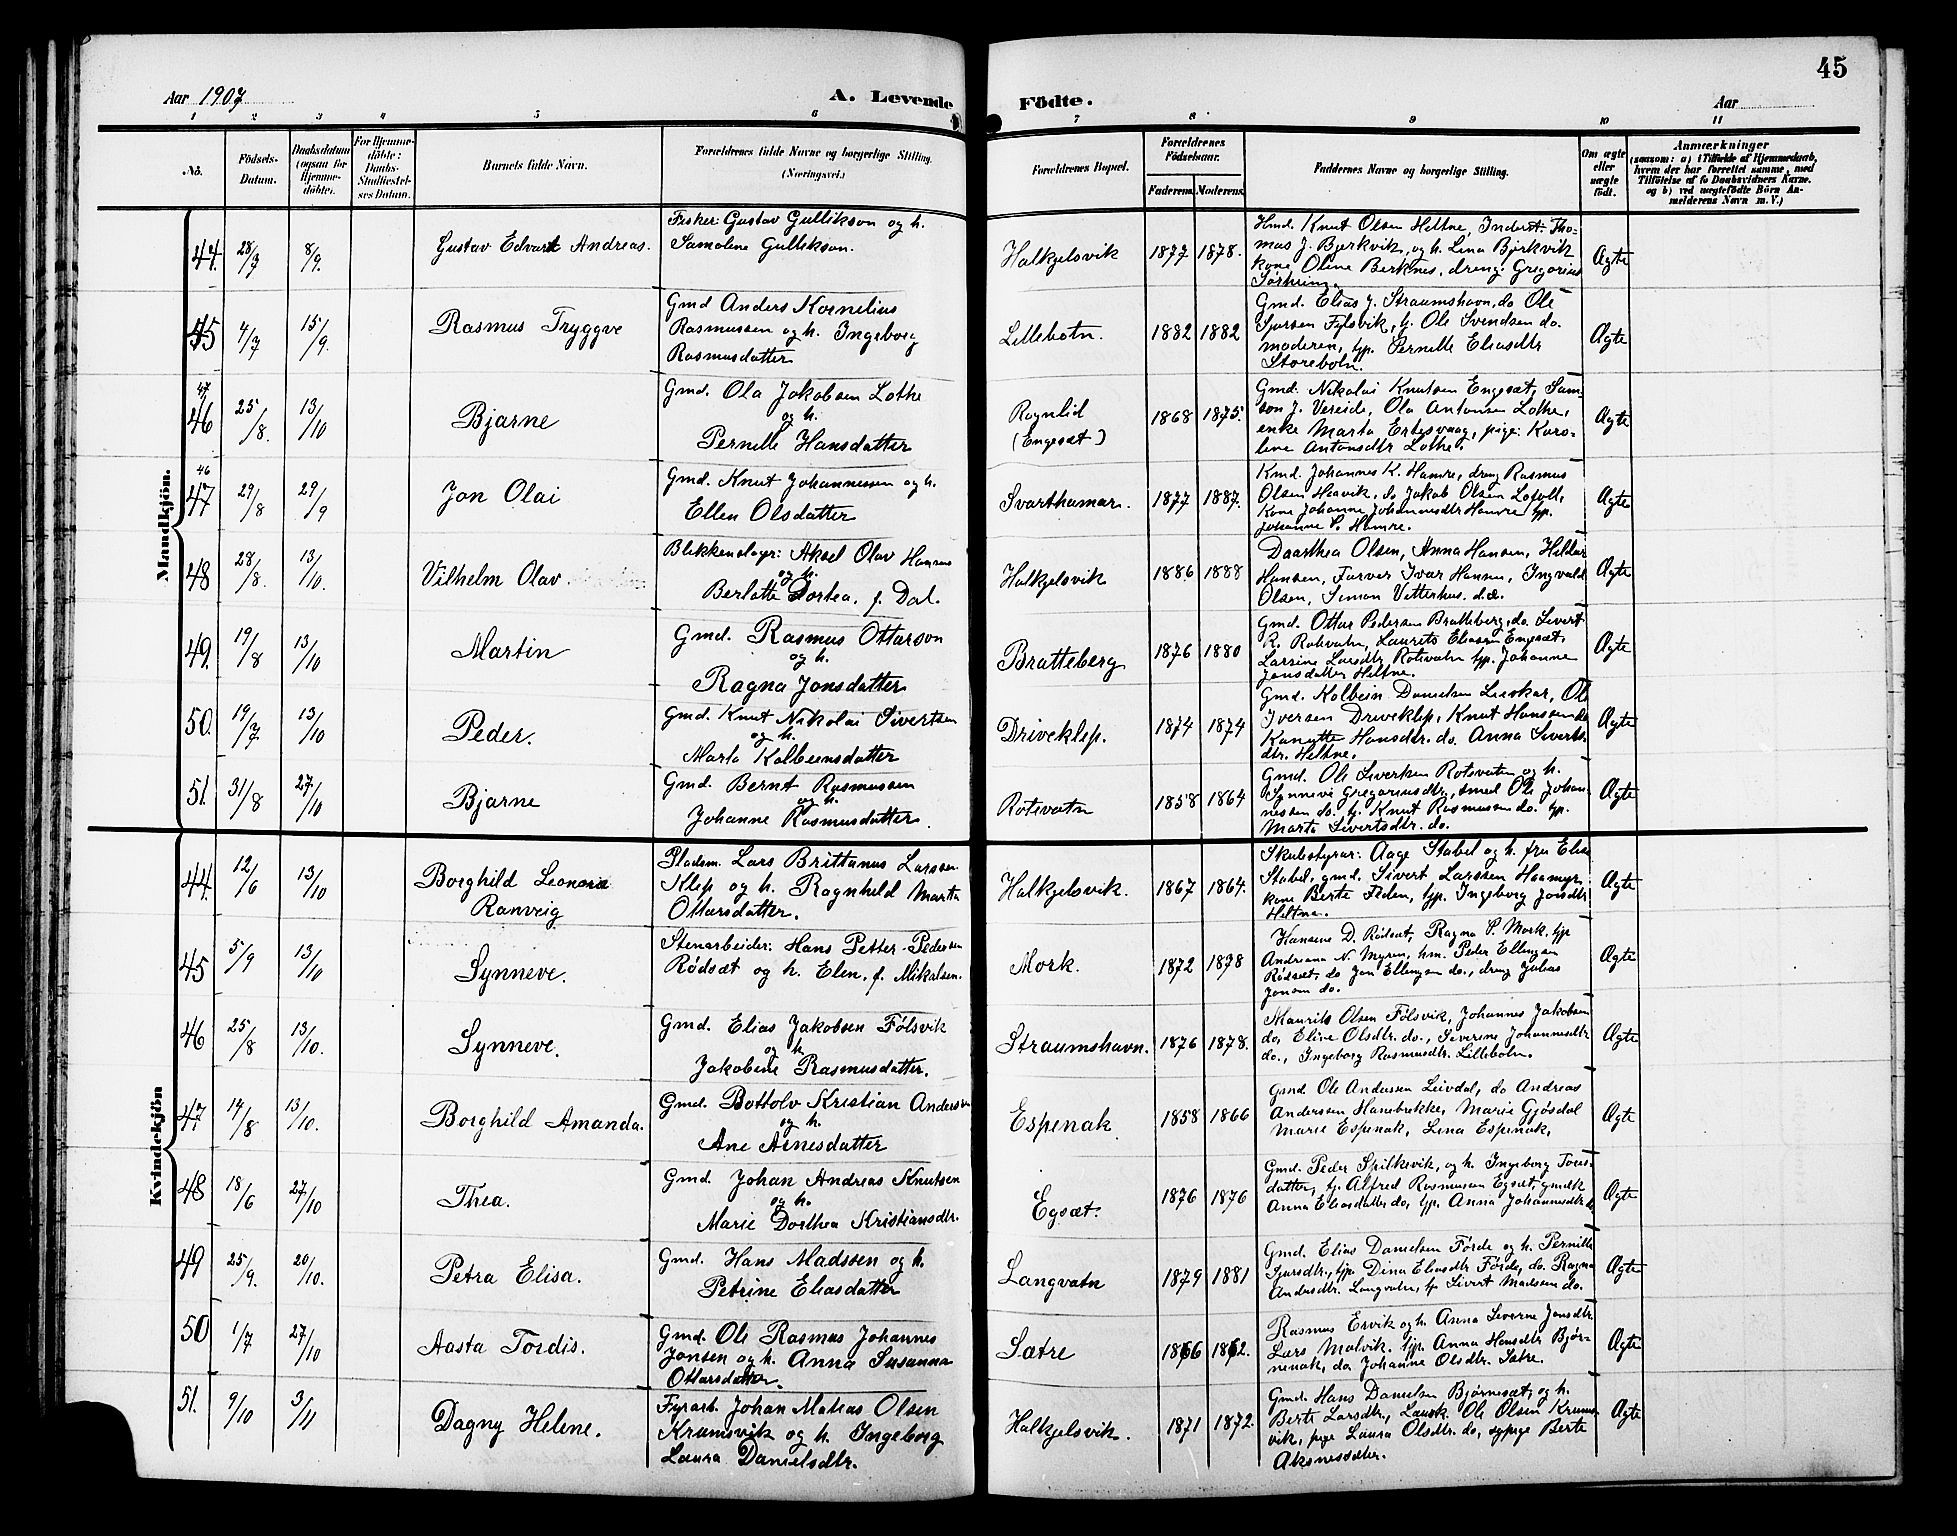 45
Aar 1907
A. Levende
Födte.
Aar
1 2 3 4 5 6
7 8 9 10 11
No.
Födsels-
Datum.
Daabsdatum
(ogsaa for
Hjemme-
døbte).
For Hjemme-
døbte:
Daabs-
Stadfæstel-
ses Datum.
Barnets fulde Navn.
Forældrenes fulde Navne og borgerlige Stilling.
(Næringsvei.)
Forældrenes Bopæl.
Forældrenes
Födselsaar.
Faderens. Moderens.
Faddernes Navne og borgerlige Stilling.
Om ægte
eller
uægte
født.
Anmærkninger
(saasom: a) i Tilfælde af Hjemmedaab,
hvem der har forrettet samme, med
Tilføielse af to Daabsvidners Navne.
og b) ved uægtefödte Börn An-
melderens Navn m. V.)
Mandkjön.
44. 28/7 8/9. Gustav Edvart Andreas.
Fisker: Gustav Gullikson og h.
Samoline Gullikson.
Halkjelsvik 1877 1878.
Gmd. Knut Olsen Heltne, Inderst. Tho-
mas J. Bjerkvik, og h. Lina Bjerkvik
kone Oline Berknes, dreng. Gregorius
Ægte
45 4/7 15/9. Rasmus Tryggve
Gmd Anders Kornelius
Rasmussen og h. Ingeborg
Rasmusdatter
Lillebotn. 1882 1882
Gmd. Elias J. Straumshavn, do Ole
Sjursen Fylsvik, tj. Ole Svendsen do.
moderen, typ. Pernille Eliasdtr
Storebotn.
Ægte
47
46 25/8. 13/10 Bjarne
Gmd. Ola Jakobsen Lothe
og h.
Pernille Hansdatter
Rognlid
(Engeset)
1868 1875.
Gmd. Nikolai Knutsen Engeset, Sam-
son J. Vereide, Ola Antonsen Lothe,
enke Marta Ertesvaag, pige: Karo-
line Antonsdtr Lothe.
Ægte
46
47 29/8 29/9 Jon Olai
Gmd. Knut Johannessen og h.
Ellen Olsdatter
Svarthamar. 1877 1887.
Kmd. Johannes K. Hamre, dreng Rasmus
Olsen Heavik, do Jakob Olsen Lofoll,
Kone Johanne Johannesdtr Hamre typ.
Johanne P. Hamre.
Ægte
48 28/8. 13/10. Vilhelm Olav.
Blikkenslager: Aksel Olav Hansen
og h.
Berlotte Dortea. f. Dal.
Halkjelsvik 1886 1888
Daarthea Olsen, Anna Hansen, Hildur
Hansen, Farver Ivar Hansen, Ingvald
Olsen, Simon Vetterhus. d.æ.
Ægte
49. 19/8 13/10 Martin
Gmd. Rasmus Ottarson
og h.
Ragna Jonsdatter
Bratteberg 1876 1880
Gmd. Ottar Pedersen Bratteberg, do. Sivert
R. Rotevatn, Laurits Eliassen Engeset,
Larsine Larsdtr Rotevatn typ. Johanne
Jonsdatter Heltne.
Ægte
50. 19/7 13/10 Peder.
Gmd. Knut Nikolai Sivertsen
og h.
Marta Kolbeinsdatter
Driveklep. 1874 1874
Gmd. Kolbein Danielsen Leeskar, Ol
Iversen Driveklep, Knut Hanssen do
Kanutte Hansdtr. do. Anna Siverts-
dtr. Heltne.
Ægte
51. 31/8 27/10 Bjarne
Gmd. Bernt Rasmussen
og h.
Johanne Rasmusdatter.
Rotevatn 1858 1864
Gmd. Ole Siverksen Rotevatn og h.
Synneve Gregoriusdtr, smed Ole Johan-
nessen do. tj. Knut Rasmussen do. typ.
Marta Sivertsdtr. do.
Ægte
Kvindekjön
44. 12/6 13/10 Borghild Leonora
Ranveig
Pladsm. Lars Brittanus Larssen
Klep og h. Ragnhild Marta
Ottarsdatter.
Halkjelsvik. 1867 1864.
Skulestyrar: Aage Stabel og h. fru Elise
Stabel, gmd. Sivert Larssen Haamyr,
kone Berte Feden, typ. Ingeborg Jonsdtr
Heltne.
Ægte
45 5/9 13/10 Synneve.
Stenarbeider: Hans Petter Pedersen
Rødsæt og h. Elen, f. Mikalsen.
Mork. 1872 1878
Hansine D. Rødsæt, Ragna P. Mork. typ
Andriana N. Myren, hm. Peder Ellingsen
Rødsæt, do Jon Ellingsen do., dreng Julius
Jonsen do.
Ægte
46 25/8 13/10. Synneve.
Gmd. Elias Jakobsen Følsvik
og h.
Jakobine Rasmusdatter.
Straumshavn. 1876 1878.
Maurits Olsen Følsvik, Johannes Jakobsen
do, Elive Olsdtr. do., Severine Johannesdtr
do., Ingeborg Rasmusdtr. Lillebotn.
Ægte
47 14/8 13/10. Borghild Amanda.
Gmd. Bottolv Kristian Anderssen
og h.
Ane Arnesdatter
Espenak 1858 1866
Gmd. Ole Anderssen Leivdal, do Andreas
Anderssen Hanebrekke, Marie Gjøsdal
Marie Espenak, Lina Espenak.
Ægte
48 18/6 27/10 Thea.
Gmd. Johan Andreas Knutsen
og h.
Marie Dorthea Kristiansdtr.
Egset. 1876 1876
Gmd. Peder Spilkevik, og h. Ingeborg Tores-
datter, tj. Alfred Rasmussen Egset, gmdk
Anna Eliasdatter do, typ. Anna Johannesdtr do
Ægte
49 25/9. 20/10. Petra Elisa.
Gmd. Hans Madssen og h.
Petrine Eliasdatter
Langvatn 1879 1881
Gmd. Elias Danielsen Førde og h. Pernille
Sjursdtr., typ. Dina Eliasdtr Førde, do. Ragna
Andersdtr. Langvatn, tj. Sivert Madssen do.
Ægte
50 1/7 27/10 Aasta Tordis.
Gmd. Ole Rasmus Johannes
Jonsen og h. Anna Susanna
Ottarsdatter.
Sætre 1866 1862.
Rasmus Ervik og h. Anna Severine Jonsdtr.
Lars Molvik. typ. Anna Hansdtr Bjør-
nenak, do Johanne Olsdtr. Sætre.
Ægte
51. 9/10 3/11 Dagny Helene.
Fyrarb. Johan Matias Olsen
Krumsvik og h. Ingeborg
Laura Danielsdtr.
Halkjelsvik. 1871 1872.
Gmd. Hans Danielsen Bjørneset, og h.
Berte Larsdtr, Ole Olsen Krums-
vik, pige Laura Olsdtr. do, sypige Berte
Aksnesdatter.
Ægte